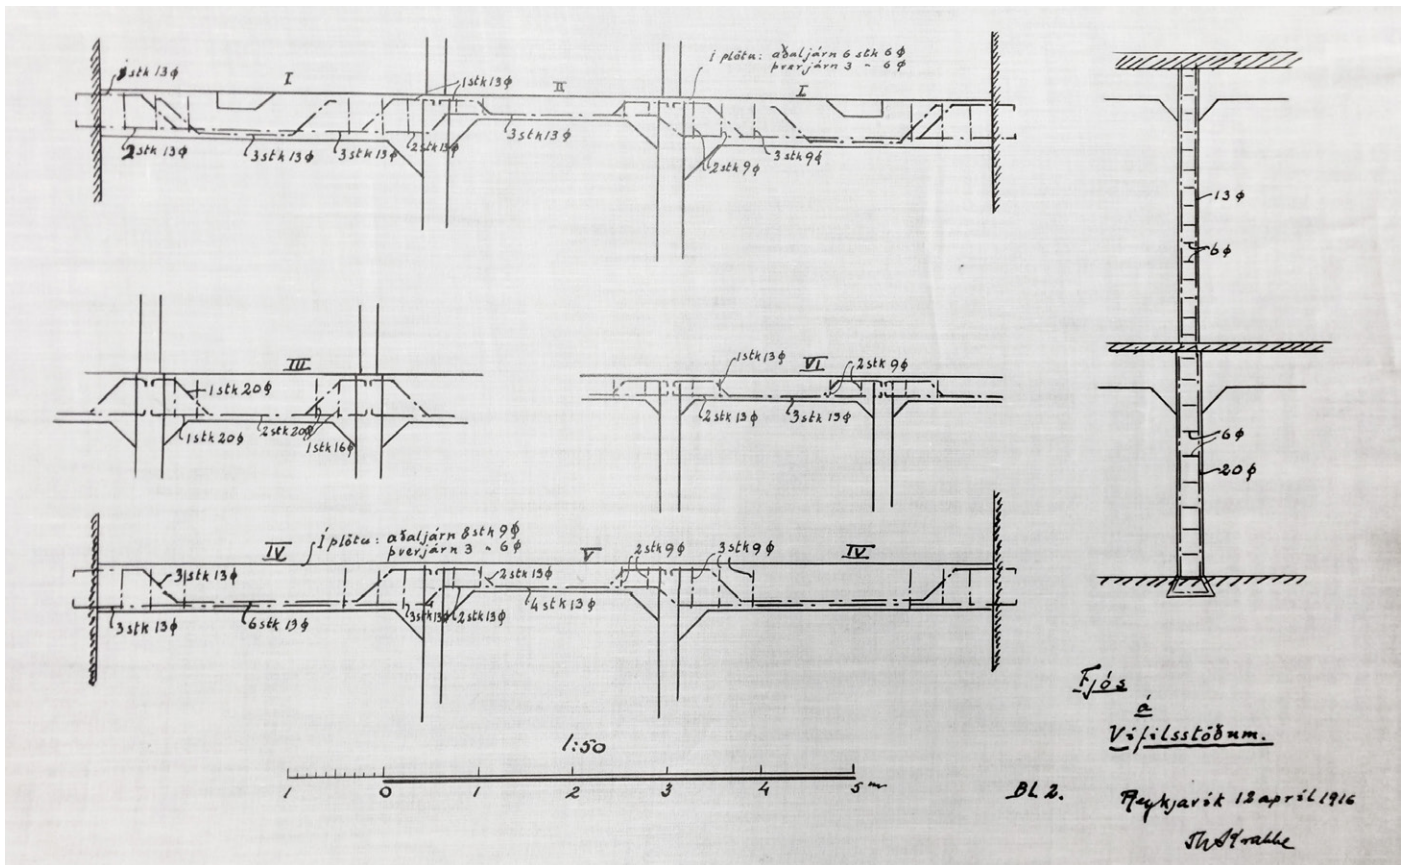 1 stk 13 φ
I
1 stk 13 φ
II
Í plötu: aðaljárn 6 stk 6 φ
þverjárn 3 " 6 φ
I
2 stk 13 φ
3 stk 13 φ
3 stk 13 φ
2 stk 13 φ
3 stk 13 φ
2 stk 9 φ
3 stk 9 φ
13 φ
6 φ
III
1 stk 20 φ
1 stk 20 φ
2 stk 20 φ
1 stk 16 φ
1 stk 13 φ
VI
2 stk 9 φ
2 stk 13 φ
3 stk 13 φ
6 φ
20 φ
IV
Í plötu: aðaljárn 8 stk 9 φ
þverjárn 3 " 6 φ
V
2 stk 9 φ
3 stk 9 φ
IV
3 stk 13 φ
2 stk 13 φ
3 stk 13 φ
6 stk 13 φ
3 stk 13 φ
2 stk 13 φ
4 stk 13 φ
1:50
1 0 1 2 3 4 5 m
Fjós
á
Vífilsstöðum.
Bl. 2.
Reykjavík 12 apríl 1916
Th Krabbe